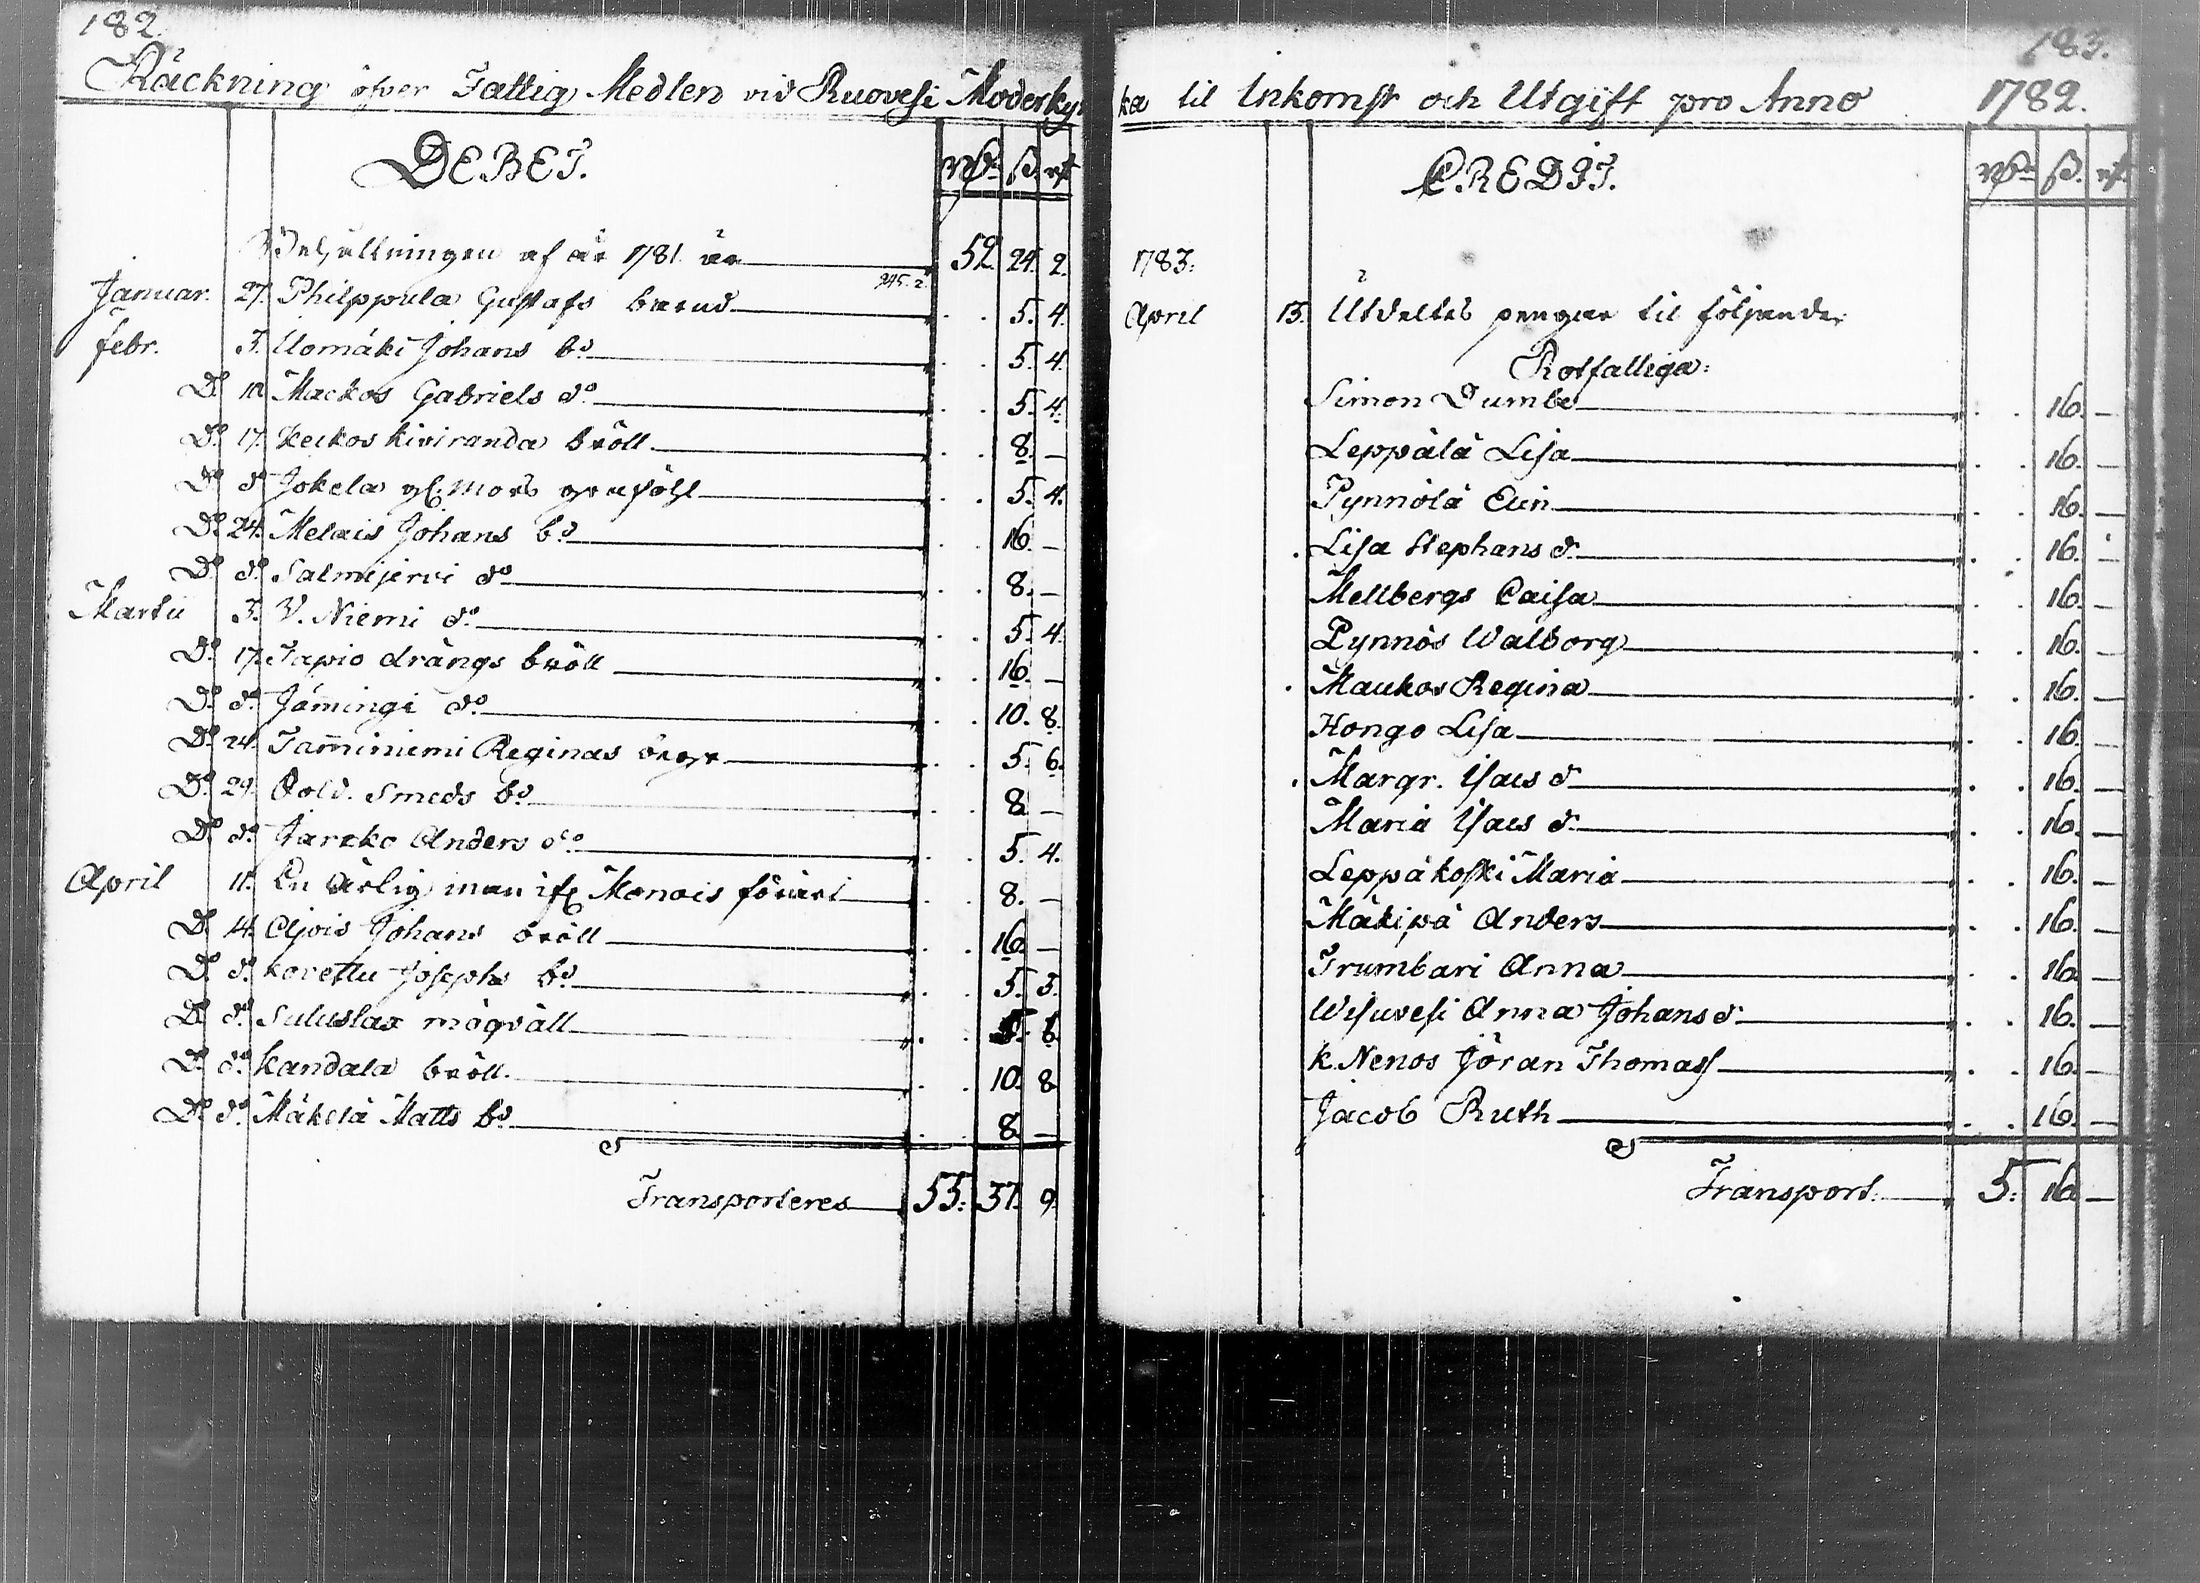 182.
Räckning öfver Fattig Medlen vid Ruovesi Moderky
DEBET.
Rdr ß. rst
Behållningen af år 1781 är 52. 24. 2.
Januar. 27. Philppula Gustafs barnd 5. 4.
febr. 3. Uomäki Johans bd 5. 4.
Do 10. Mackos Gabriels do 5. 4.
Do 17. Keikos kiviranda bröll 8. —
Do do Jokela gl. mors grafföhl 5. 4.
Do 24. Melais Johans bd 16. —
Do do Salmijervi do 8. —
Martii 3. V. Niemi do 5. 4.
Do 17. Tapio drängs bröll 16. —
Do do Jämingi do 10. 8.
Do 24. Tam̄iniemi Reginas begr 5. 6.
Do 29. Sold. Smeds bd 8 —
Do do Jareko Anders do 5. 4.
April 11. En ärlig man ifr Monois förärt 8. —
Do 14. Ajois Johans bröll 16. —
Do do Korettu Josephs bd 5. 3.
Do do Suluslax mögväll 6.
Do do Kandala bröll. 10. 8
Do do Mäkelä Matts bd 8 —
Transporteres 55. 37. 9.
183.
ka til Inkomst och Utgift pro Anno 1782.
CREDIT.
Rdr ß. rst.
1783.
April 13. Utdeltes pengar til följande
Rotfattiga:
Simon Dumbe 16. —
Leppälä Lisa 16. —
Pynnölä Elin 16. —
Lisa Stephans d. 16. —
Mellbergs Caisa 16. —
Pynnös Walborg 16. —
Maukos Regina 16. —
Hongo Lisa 16. —
Margr. Isacs d 16. —
Maria Isacs d. 16. —
Leppäkoski Maria 16. —
Mäkipä Anders 16. —
Trumbari Anna 16 —
Wisuvesi Anna Johans d. 16. —
K. Nenos Jöran Thomass 16. —
Jacob Ruth 16. —
Transport. 5. 16 —